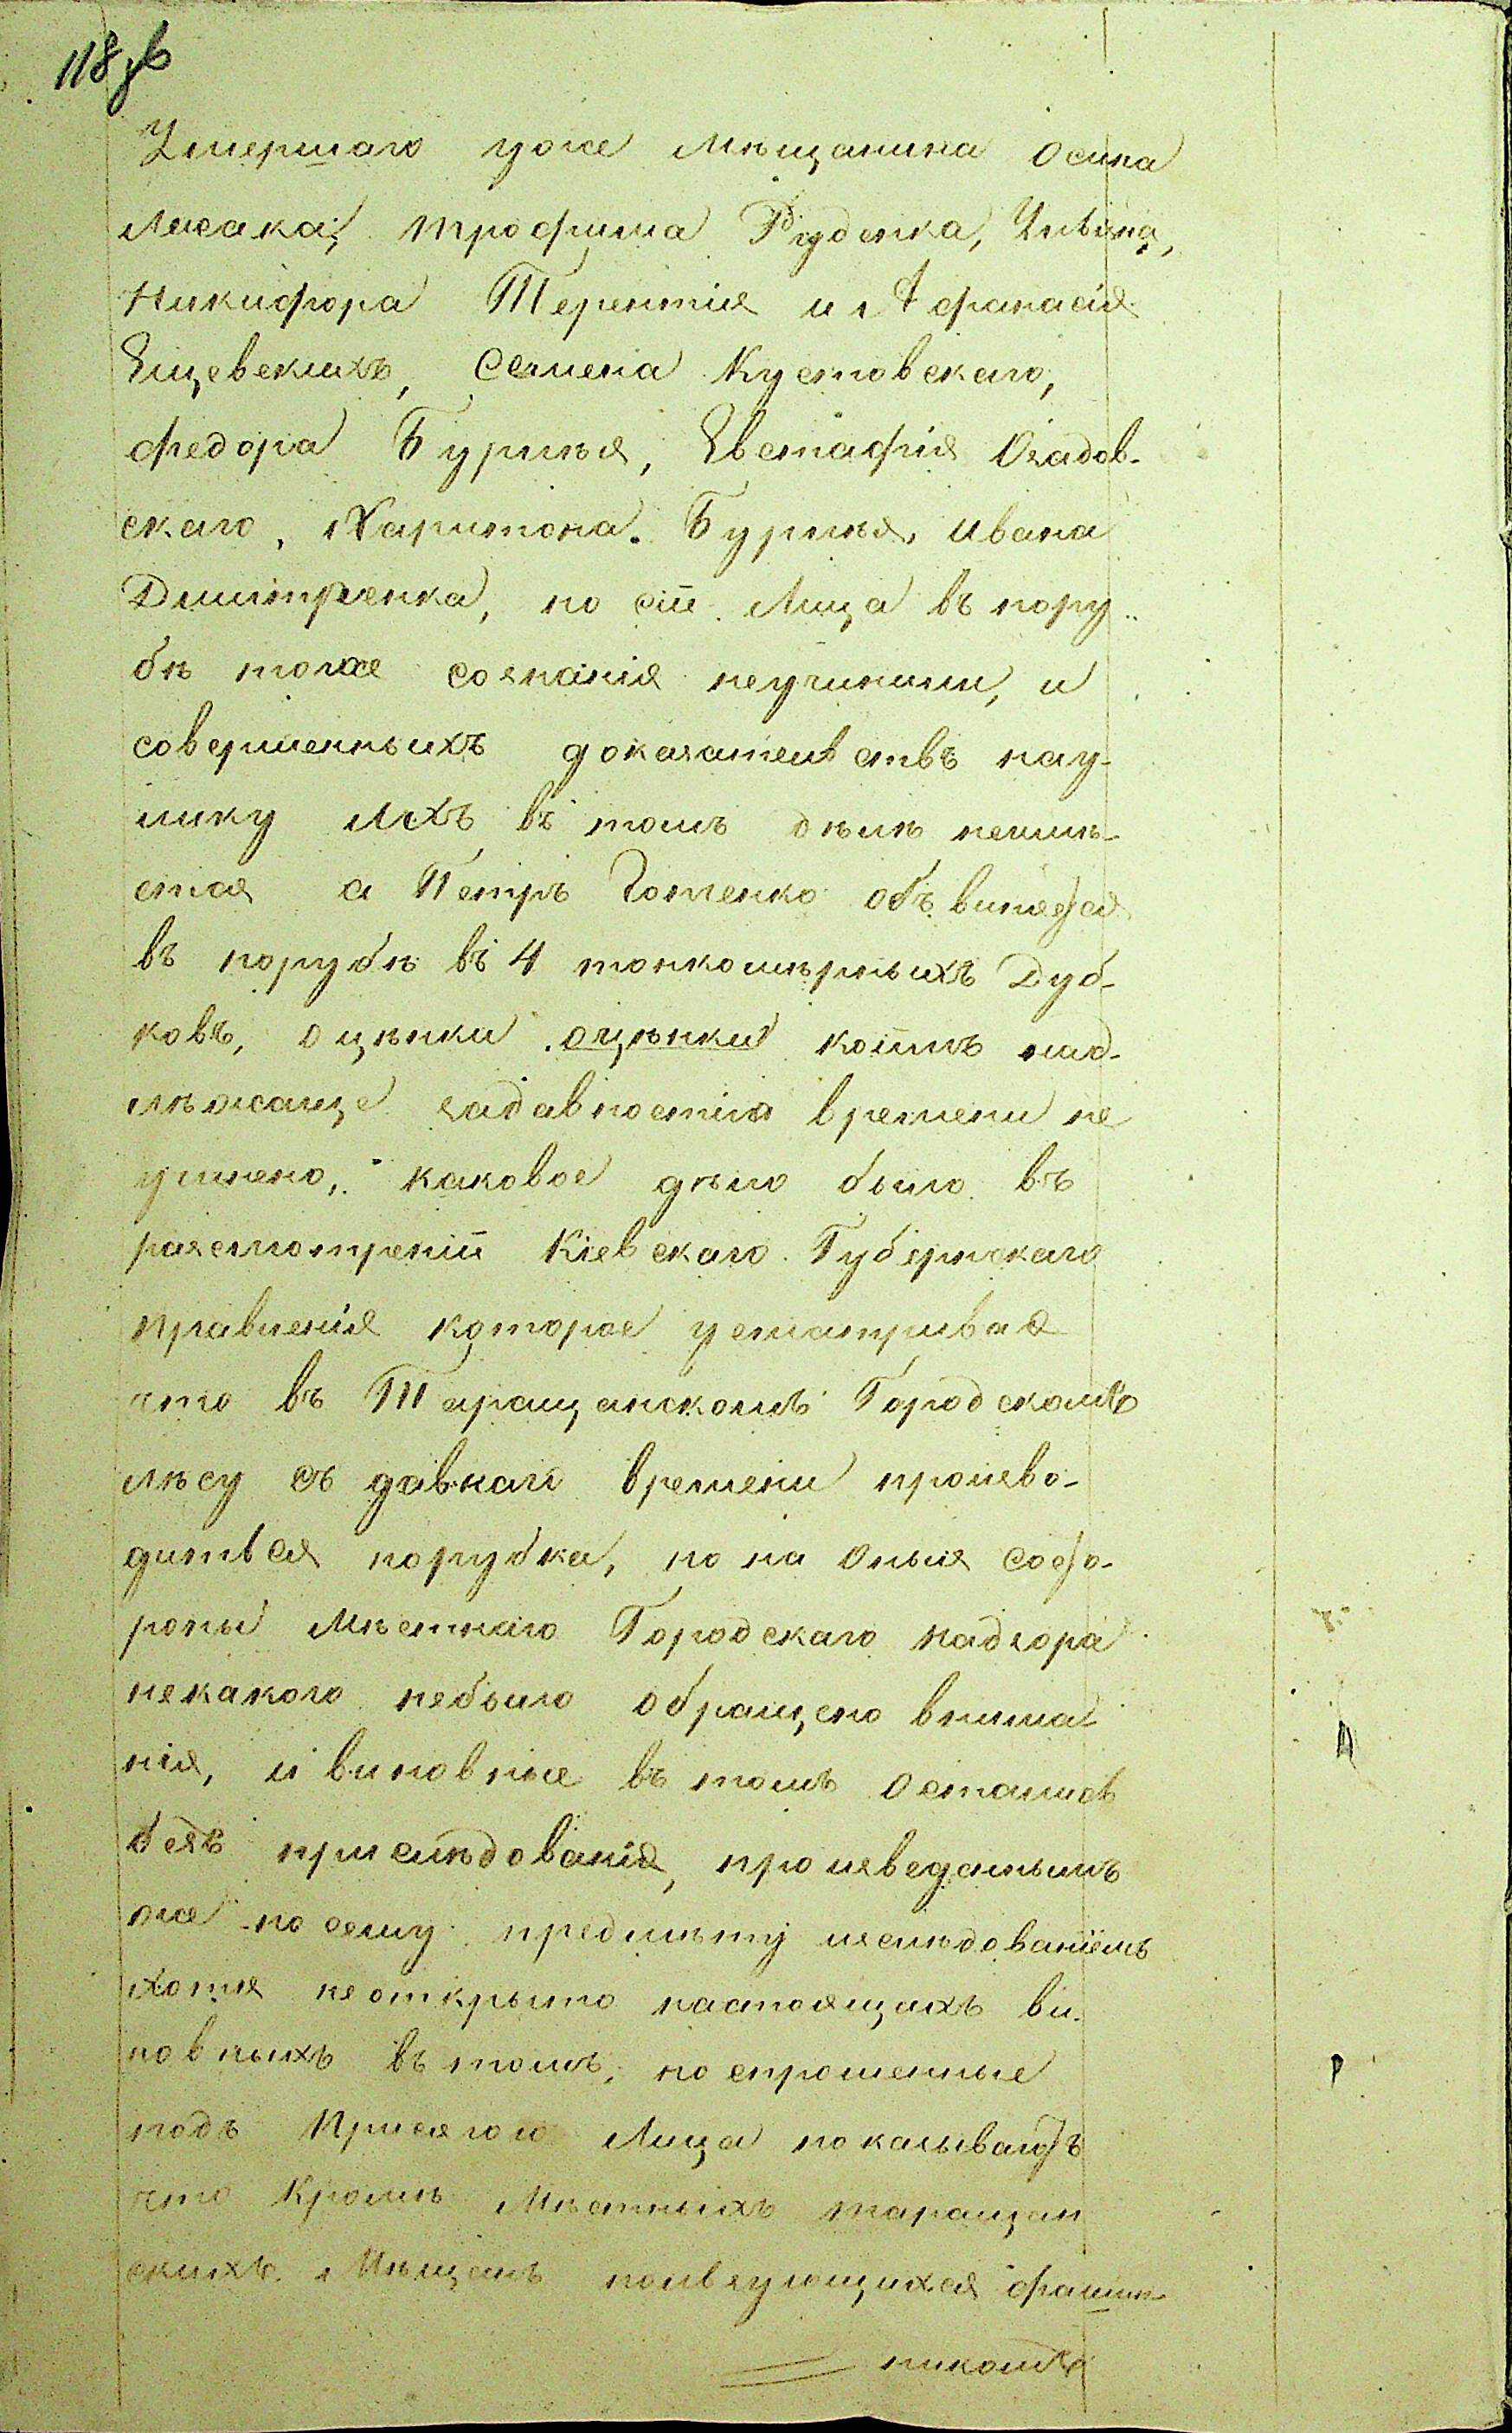 118 зв
Умершаго уже мѣщанина Осипа
Лисака, трофима Руденка,
Никифора Терентія и Афанасія
Ещевскихъ, Семена Кустовскаго,
федора Буриья, Евстафія Озадов-
скаго, Харитона. Буриья, Ивана
Дмитренка, но сіи Лица въ пору-
бкѣ тоже сознанія неучинили, и
совершенныхъ доказательствъ кау-
лику ихъ въ томъ дѣлѣ неимѣ-
ется а Петръ объвиняется
въ порубкѣ въ 4 тонкомѣрныхъ Дуб-
ковъ, оцѣнки оцѣнки коимъ над-
лѣжаще задавностію времени не
учинено, каковое дѣло было въ
разсмотреніи Кіевскаго Губернскаго
правленія которое усматривая
что въ Таращанскомъ Городскомъ
лѣсу съ давнаго времени произво-
диться порубка, но на оныя состо-
роны Мѣстнаго Городскаго надзора
некакого небыло обращено внима
нія, и виновные въ томъ остались
безъ прислѣдованія, произведаннымъ
же по сему предмѣту изслѣдованіемъ
хотя не открыто настоящихъ ви-
новныхъ въ томъ, но спрошенные
подъ Присягою Лица показываютъ
что Кромѣ Мѣстныхъ таращан
скихъ Мѣщанъ пользующихся
никомъ